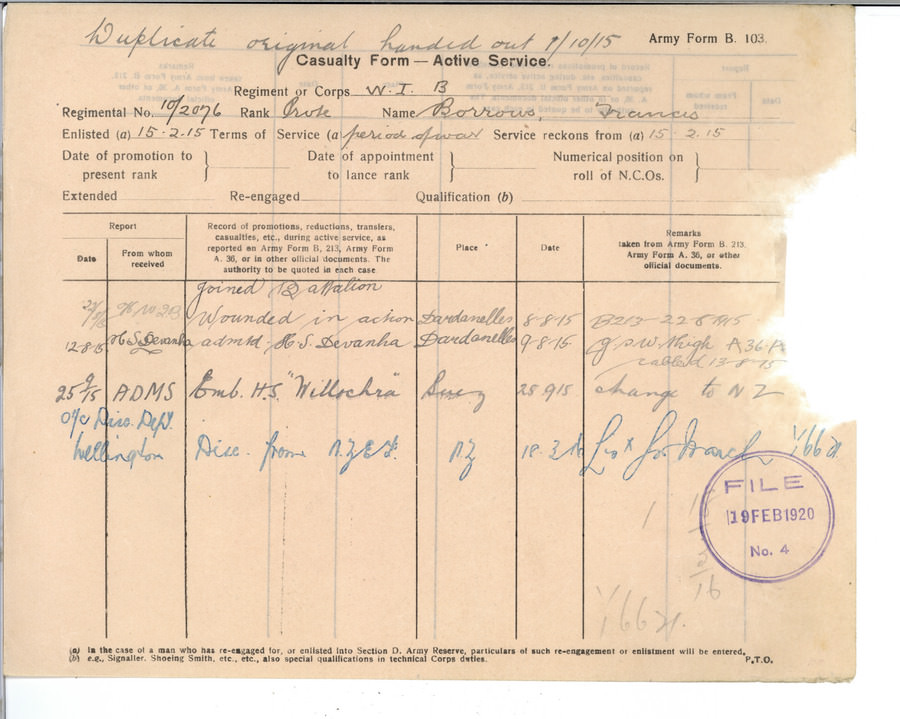 Duplicate original handed out 1/10/15
Army Form B. 103.
Casualty Form — Active Service.
Regiment or Corps W. I. B
Regimental No. 10/2076 Rank Name Borrows, Francis
Enlisted (a) 15-2-15 Terms of Service (a period of war Service reckons from (a) 15 2.15
Date of promotion to present rank } Date of appointment to lance rank } Numerical position on roll of N.C.Os. }
Extended Re-engaged Qualification (b)
Report
Date
From whom received
Record of promotions, reductions, transfers, casualties, etc., during active service, as reported on Army Form B, 213, Army Form A. 36, or in other official documents. The authority to be quoted in each case
Place
Date
Remarks taken from Army Form B. 213, Army Form A. 36, or other official documents.
Joined Battalion
Wounded in action Dardanelles 8-8-15 B213 22-8-15
12-8-15 H.S Devanha admtd H.S. Devanha Dardanelles 9-8-15 G.S.W. thigh A36
cabled 13-8-15
25 9/15 ADMS Emb. H.S. "Willochra" Suez 25 9 15 change to N Z
O/C Disc. Dept.
Wellington Disc. from N.Z.E.F. N Z 18-3-16
FILE
19 FEB 1920
No. 4
(a) In the case of a man who has re-engaged for, or enlisted into Section D. Army Reserve, particulars of such re-engagement or enlistment will be entered.
(b) e.g., Signaller. Shoeing Smith, etc., etc., also special qualifications in technical Corps duties.
P.T.O.